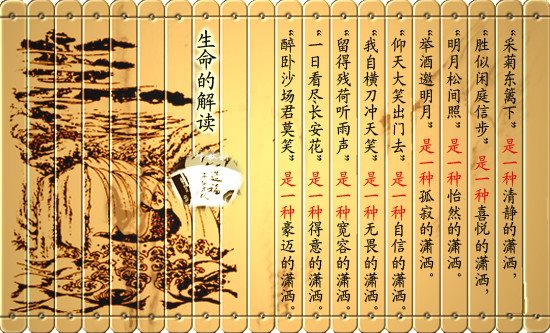 “采菊东篱下”是一种清静的潇洒，
“胜似闲庭信步”是一种喜悦的潇洒，
“明月松间照”是一种怡然的潇洒。
“举酒邀明月”是一种孤寂的潇洒。
“仰天大笑出门去”是一种自信的潇洒。
“我自横刀冲天笑”是一种无畏的潇洒。
“留得残荷听雨声”是一种宽容的潇洒。
“一日看尽长安花”是一种得意的潇洒。
“醉卧沙场君莫笑”是一种豪迈的潇洒。
生命的解读